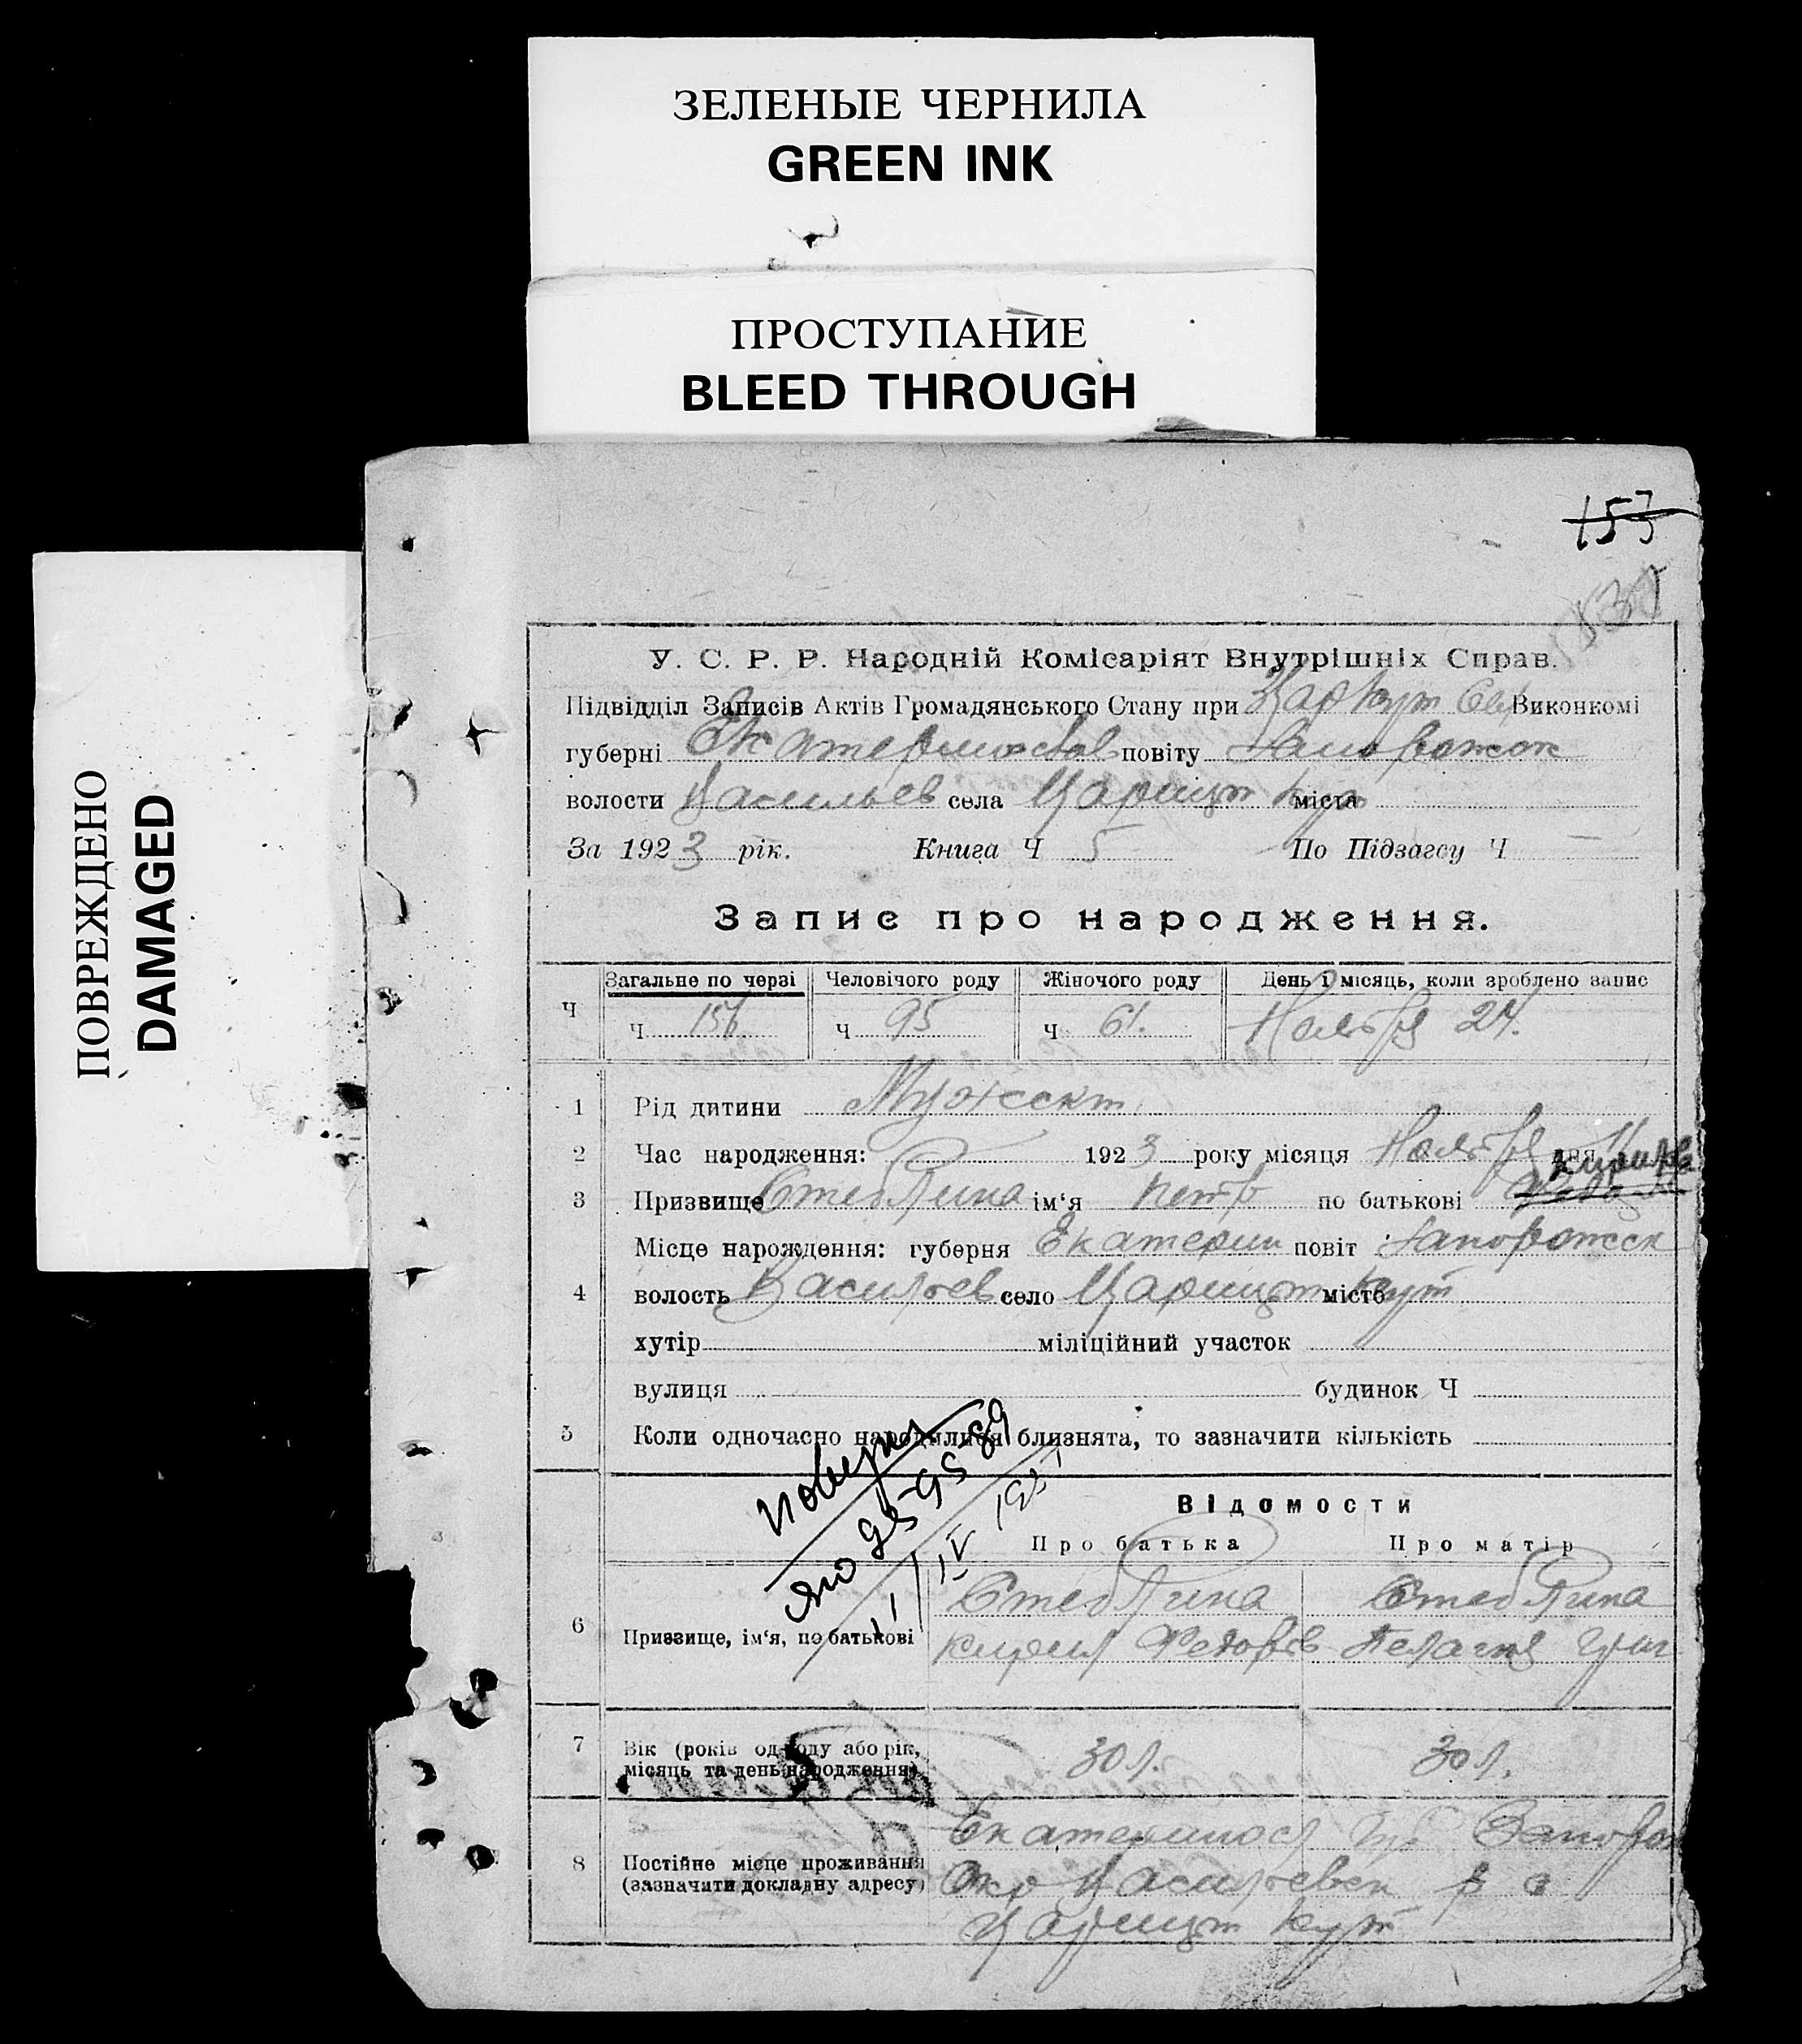 ЗЕЛЕНЫЕ ЧЕРНИЛА
GREEN INK
ПРОСТУПАНИЕ
BLEED THROUGH
ПОВРЕЖДЕНО
DAMAGED
153
У. С. Р. Р. Народній Комісаріят Внутрішніх Справ.
Підвідділ Записів Актів Громадянського Стану при Цар Кут Виконкомі
губерні Екатеринослав повіту Запорожск
волости Васильев села Царицын Кут міста
За 1923 рік. Книга Ч 5 По Підзагсу Ч —
Запис про народження.
Загальне по черзі Человічого роду Жіночого роду День і місяць, коли зроблено запис
Ч Ч 156 Ч 95 Ч 61. Ноября 24.
1 Рід дитини Мужеск
2 Час народження: 1923 року місяця Ноября дня
3 Призвище Стеблина ім‘я Петр по батькові
Місце нарождення: губерня Екатерин повіт Запорожск
4 волость Васильев село Царицын Кут місто
хутір міліційний участок
вулиця будинок Ч
5 Коли одночасно народилися близнята, то зазначити кількість
Відомости
Про батька Про матір
Стеблина Стеблина
6 Призвище, ім‘я, по батькові Кирил Федоров Пелагия Григ
7 Вік (років од роду або рік, місяць та день народження) 30 л. 30 л.
Екатериносл губ Запорож
8 Постійне місце проживання
(зазначити докладну адресу) Окр Васильевск р с
Царицын Кут